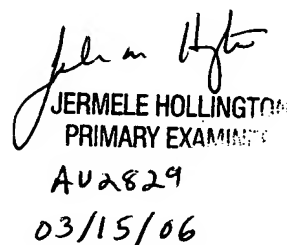 JERMELE HOLLINGTON
PRIMARY EXAMINER
AU2829
03/15/06